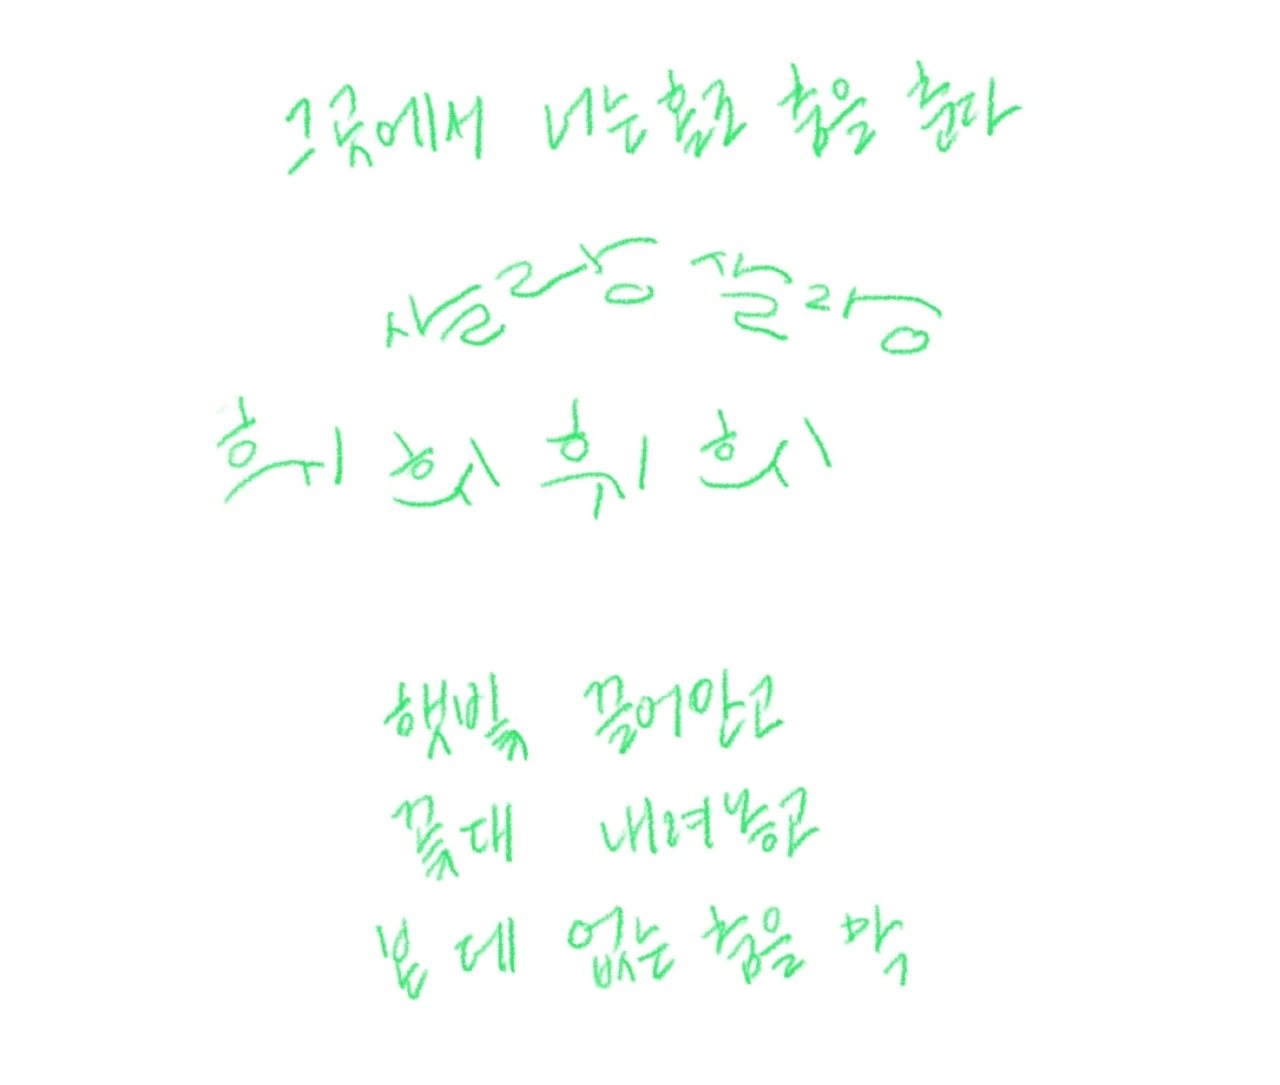 그곳에서 너는 홀로 춤을 춘다
살랑 살랑
휘 휘 휘 휘
햇빛 끌어안고
꽃대 내려놓고
본 데 없는 춤을 막